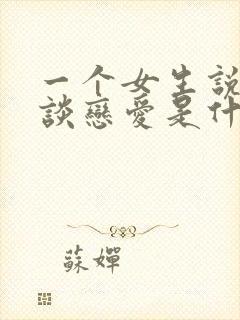 一个女生說
談戀愛是什
蘇嬋